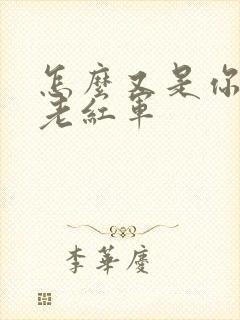 怎麼又是你
老紅軍
李華慶